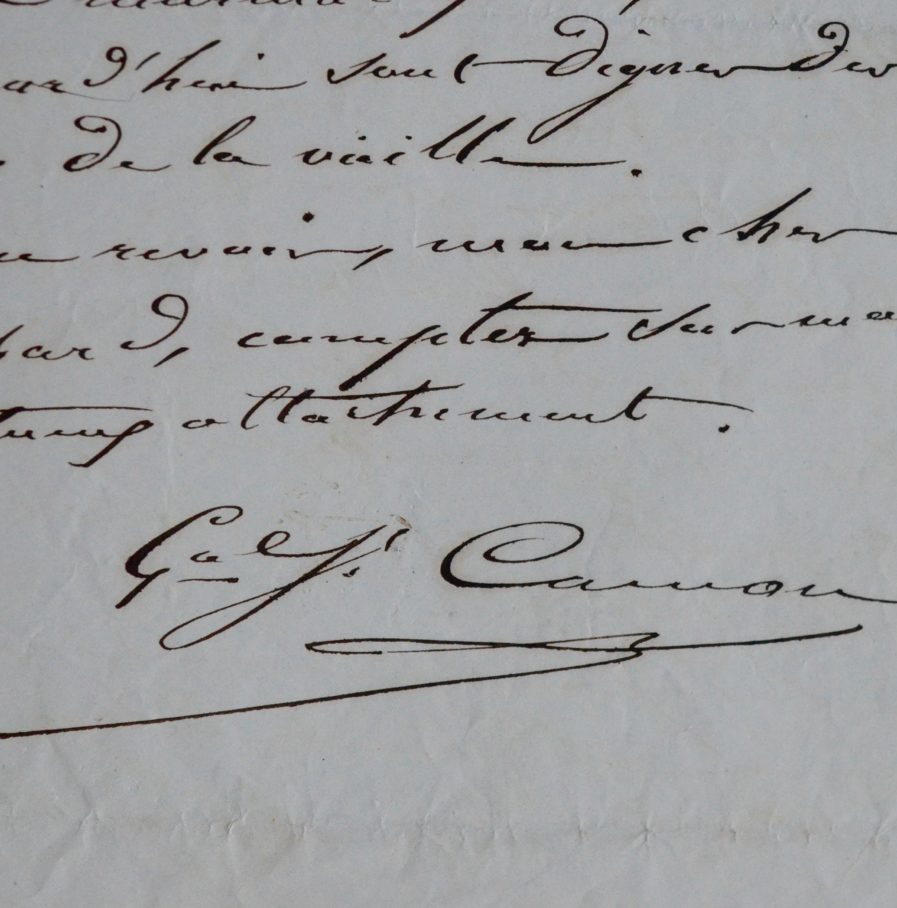 ourd'hui sont dignes des
de la vieille.
au revoir, mon cher
bard, comptez sur ma
attachement.
Gal Jh Camou